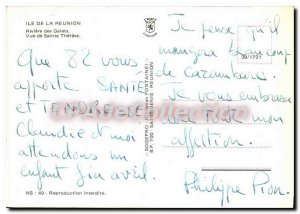 ILE DE LA REUNION
Rivière des Galets.
Vue de Sainte Thérèse.
39/1721
Que 82 vous
apporte SANTÉ
et TENDRESSE
Claudie et moi
attendons un
enfant fin avril.
Je pense qu'il
mangera beaucoup
de carambars.
Je vous embrasse
avec tout mon
affection.
Philippe Pion.
NS - 49 - Reproduction Interdite.